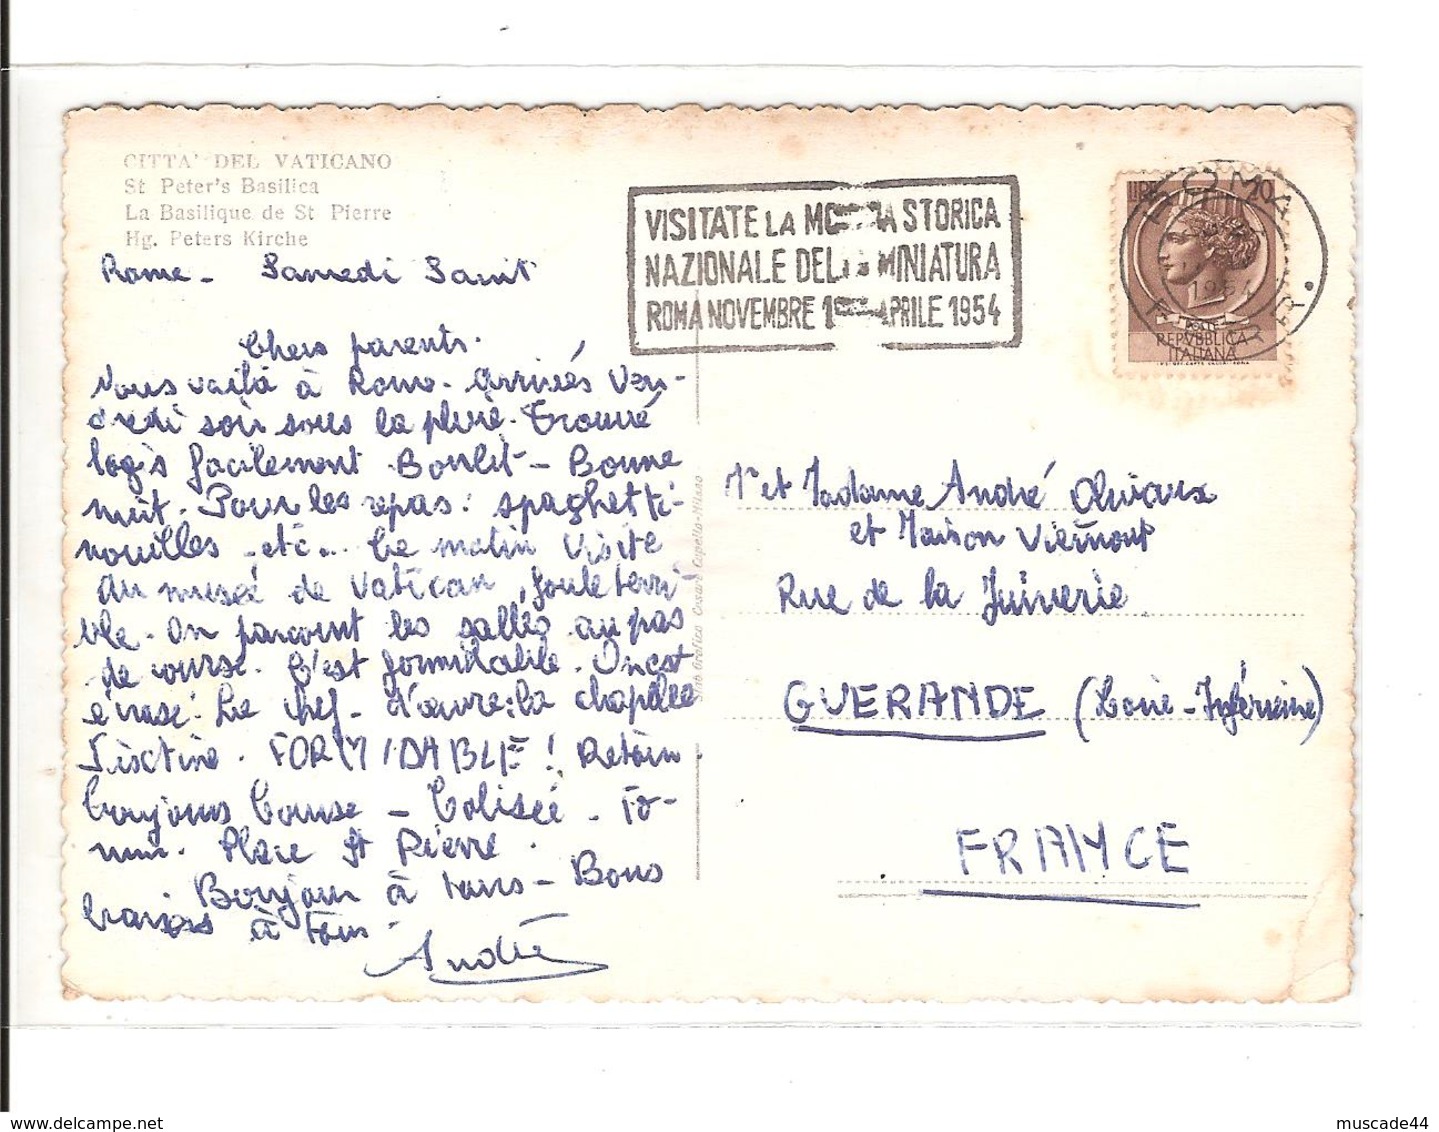 CITTA' DEL VATICANO
St Peter's Basilica
La Basilique de St Pierre
Hg. Peters Kirche
VISITATE LA MO A STORICA
NAZIONALE DEL MINIATURA
ROMA NOVEMBRE 1 APRILE 1954
LIRE 20
ROMA
1954
POSTE
REPVBBLICA
ITALIANA
Rome - Samedi Saint
Chers parents.
Nous voilà à Rome. Arrivés Ven-
dredi soir sous la pluie. Trouvé
logis facilement. Bon lit - Bonne
nuit. Pour les repas : spaghetti-
nouilles - etc... Ce matin visite
du musée de Vatican, foule terri-
ble. On parcourt les salles au pas
de course. C'est formidable. On est
écrasé. Le chef-d'œuvre: la chapelle
Sixtine. FORMIDABLE ! Retour
toujours course - Colisée - Fo-
rum. Place St Pierre.
Bonjour à tous - Bons
baisers à tous.
André
Mr et Madame André
et Maison
Rue de la Juiverie
GUERANDE (Loire-Inférieure)
FRANCE
Stab. Grafico Cesare Capello - Milano
www.delcampe.net
muscade44